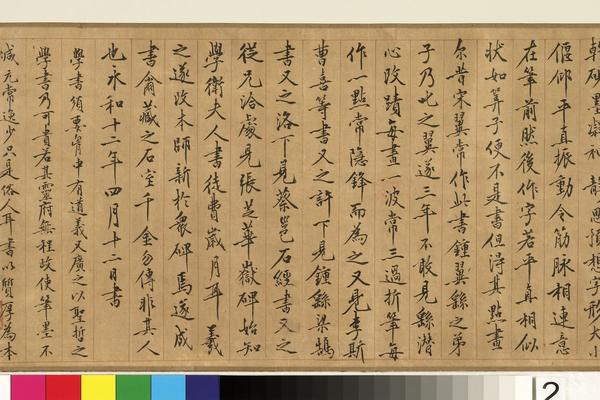 乾研墨凝神靜思預想字形大小
偃仰平直振動令筋脉相連意
在筆前然後作字若平直相似
狀如筭子便不是書但得其點畫
尔昔宋翼常作此書鍾翼繇之弟
子乃叱之翼遂三年不敢見繇潛
心改蹟每畫一波常三過折筆每
作一點常隱鋒而為之又見李斯
曹喜等書又之許下見鍾繇梁鵠
書又之洛下見蔡邕石經書又之
從兄洽處見張芝華嶽碑始知
學衛夫人書徒費歲月耳 羲
之遂改本師新於衆碑焉遂成
書翕藏之石室千金勿傳非其人
也永和十二年四月十二日書
學書須要胷中有道義又廣之以聖哲之
學書乃可貴若其靈府無程政使筆墨不
減元常逸少只是俗人耳書以質厚為本
2